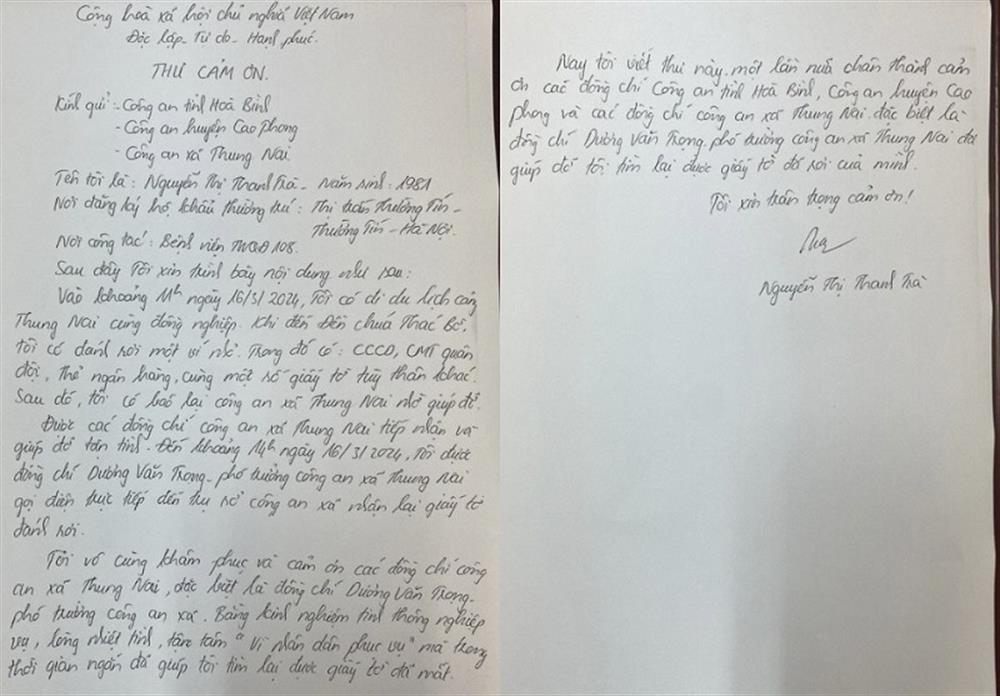 Cộng hoà xã hội chủ nghĩa Việt Nam
Độc lập - Tự do - Hạnh phúc.
THƯ CẢM ƠN.
Kính gửi: - Công an tỉnh Hoà Bình
- Công an huyện Cao Phong
- Công an xã Thung Nai.
Tên tôi là: Nguyễn Thị Thanh Trà - Năm sinh: 1981
Nơi đăng ký hộ khẩu thường trú: Thị trấn Thường Tín -
Thường Tín - Hà Nội.
Nơi công tác: Bệnh viện TWQĐ 108.
Sau đây Tôi xin trình bày nội dung như sau:
Vào khoảng 11h ngày 16/3/2024, Tôi có đi du lịch cảng
Thung Nai cùng đồng nghiệp. Khi đến Đền chúa Thác Bờ,
tôi có đánh rơi một ví nhỏ. Trong đó có: CCCD, CMT quân
đội, Thẻ ngân hàng, cùng một số giấy tờ tuỳ thân khác.
Sau đó, tôi có báo lại công an xã Thung Nai nhờ giúp đỡ.
Được các đồng chí công an xã Thung Nai tiếp nhận và
giúp đỡ tận tình. Đến khoảng 14h ngày 16/3/2024, Tôi được
đồng chí Dương Văn Trọng - phó trưởng công an xã Thung Nai
gọi điện trực tiếp đến trụ sở công an xã nhận lại giấy tờ
đánh rơi.
Tôi vô cùng khâm phục và cảm ơn các đồng chí công
an xã Thung Nai, đặc biệt là đồng chí Dương Văn Trọng -
phó trưởng công an xã. Bằng kinh nghiệm tinh thông nghiệp
vụ, lòng nhiệt tình, tận tâm "Vì nhân dân phục vụ" mà trong
thời gian ngắn đã giúp tôi tìm lại được giấy tờ đã mất.
Nay tôi viết thư này một lần nữa chân thành cảm
ơn các đồng chí Công an tỉnh Hoà Bình, Công an huyện Cao
phong và các đồng chí công an xã Thung Nai. đặc biệt là
đồng chí Dương Văn Trọng - phó trưởng công an xã Thung Nai đã
giúp đỡ tôi tìm lại được giấy tờ đã rơi của mình.
Tôi xin trân trọng cảm ơn!
Nguyễn Thị Thanh Trà